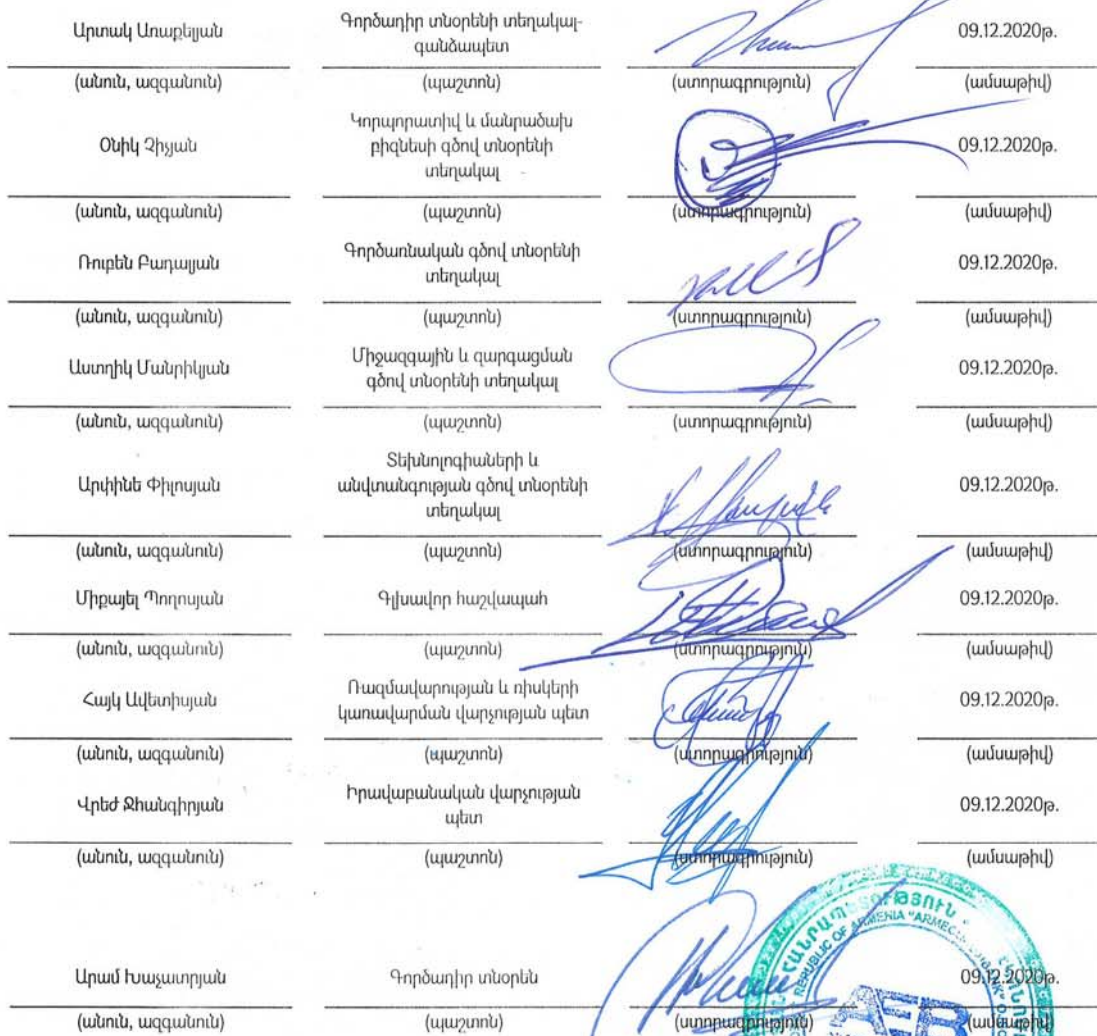 Արտակ Առաքելյան Գործադիր տնօրենի տեղակալ- 09.12.2020թ.
գանձապետ
(անուն, ազգանուն) (պաշտոն) (ստորագրություն) (ամսաթիվ)
Օնիկ Չիչյան Կորպորատիվ և մանրածախ 09.12.2020թ.
բիզնեսի գծով տնօրենի
տեղակալ
(անուն, ազգանուն) (պաշտոն) (ստորագրություն) (ամսաթիվ)
Ռուբեն Բադալյան Գործառնական գծով տնօրենի 09.12.2020թ.
տեղակալ
(անուն, ազգանուն) (պաշտոն) (ստորագրություն) (ամսաթիվ)
Աստղիկ Մանրիկյան Միջազգային և զարգացման 09.12.2020թ.
գծով տնօրենի տեղակալ
(անուն, ազգանուն) (պաշտոն) (ստորագրություն) (ամսաթիվ)
Արփինե Փիլոսյան Տեխնոլոգիաների և 09.12.2020թ.
անվտանգության գծով տնօրենի
տեղակալ
(անուն, ազգանուն) (պաշտոն) (ստորագրություն) (ամսաթիվ)
Միքայել Պողոսյան Գլխավոր հաշվապահ 09.12.2020թ.
(անուն, ազգանուն) (պաշտոն) (ստորագրություն) (ամսաթիվ)
Հայկ Ավետիսյան Ռազմավարության և ռիսկերի 09.12.2020թ.
կառավարման վարչության պետ
(անուն, ազգանուն) (պաշտոն) (ստորագրություն) (ամսաթիվ)
Վրեժ Ջհանգիրյան Իրավաբանական վարչության 09.12.2020թ.
պետ
(անուն, ազգանուն) (պաշտոն) (ստորագրություն) (ամսաթիվ)
REPUBLIC OF ARMENIA
Արամ Խաչատրյան Գործադիր տնօրեն 09.12.2020թ.
(անուն, ազգանուն) (պաշտոն) (ստորագրություն) (ամսաթիվ)